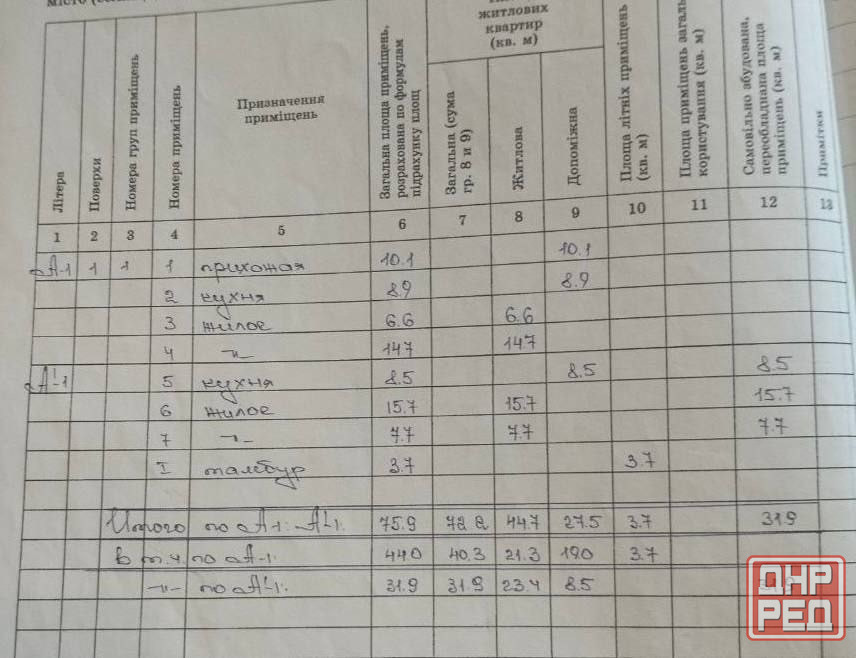 житлових
квартир
(кв. м)
Літера
Поверхи
Номера груп приміщень
Номера приміщень
Призначення
приміщень
Загальна площа приміщень,
розрахована по формулам
підрахунку площ
Загальна (сума
гр. 8 и 9)
Житлова
Допоміжна
Площа літніх приміщень
(кв. м)
Площа приміщень загаль
користування (кв. м)
Самовільно збудована,
переобладнана площа
приміщень (кв. м)
Примітки
1 2 3 4 5 6 7 8 9 10 11 12 13
А-1 1 1 1 прихожая 10.1 10.1
2 кухня 8.9 8.9
3 жилое 6.6 6.6
4 -"- 14.7 14.7
А'-1 5 кухня 8.5 8.5 8.5
6 жилое 15.7 15.7 15.7
7 -"- 7.7 7.7 7.7
I тамбур 3.7 3.7
Итого по А-1: А'-1. 75.9 72.2 44.7 27.5 3.7 31.9
в т.ч. по А-1. 44.0 40.3 21.3 19.0 3.7
-"- по А'-1. 31.9 31.9 23.4 8.5
ДНР
РЕД